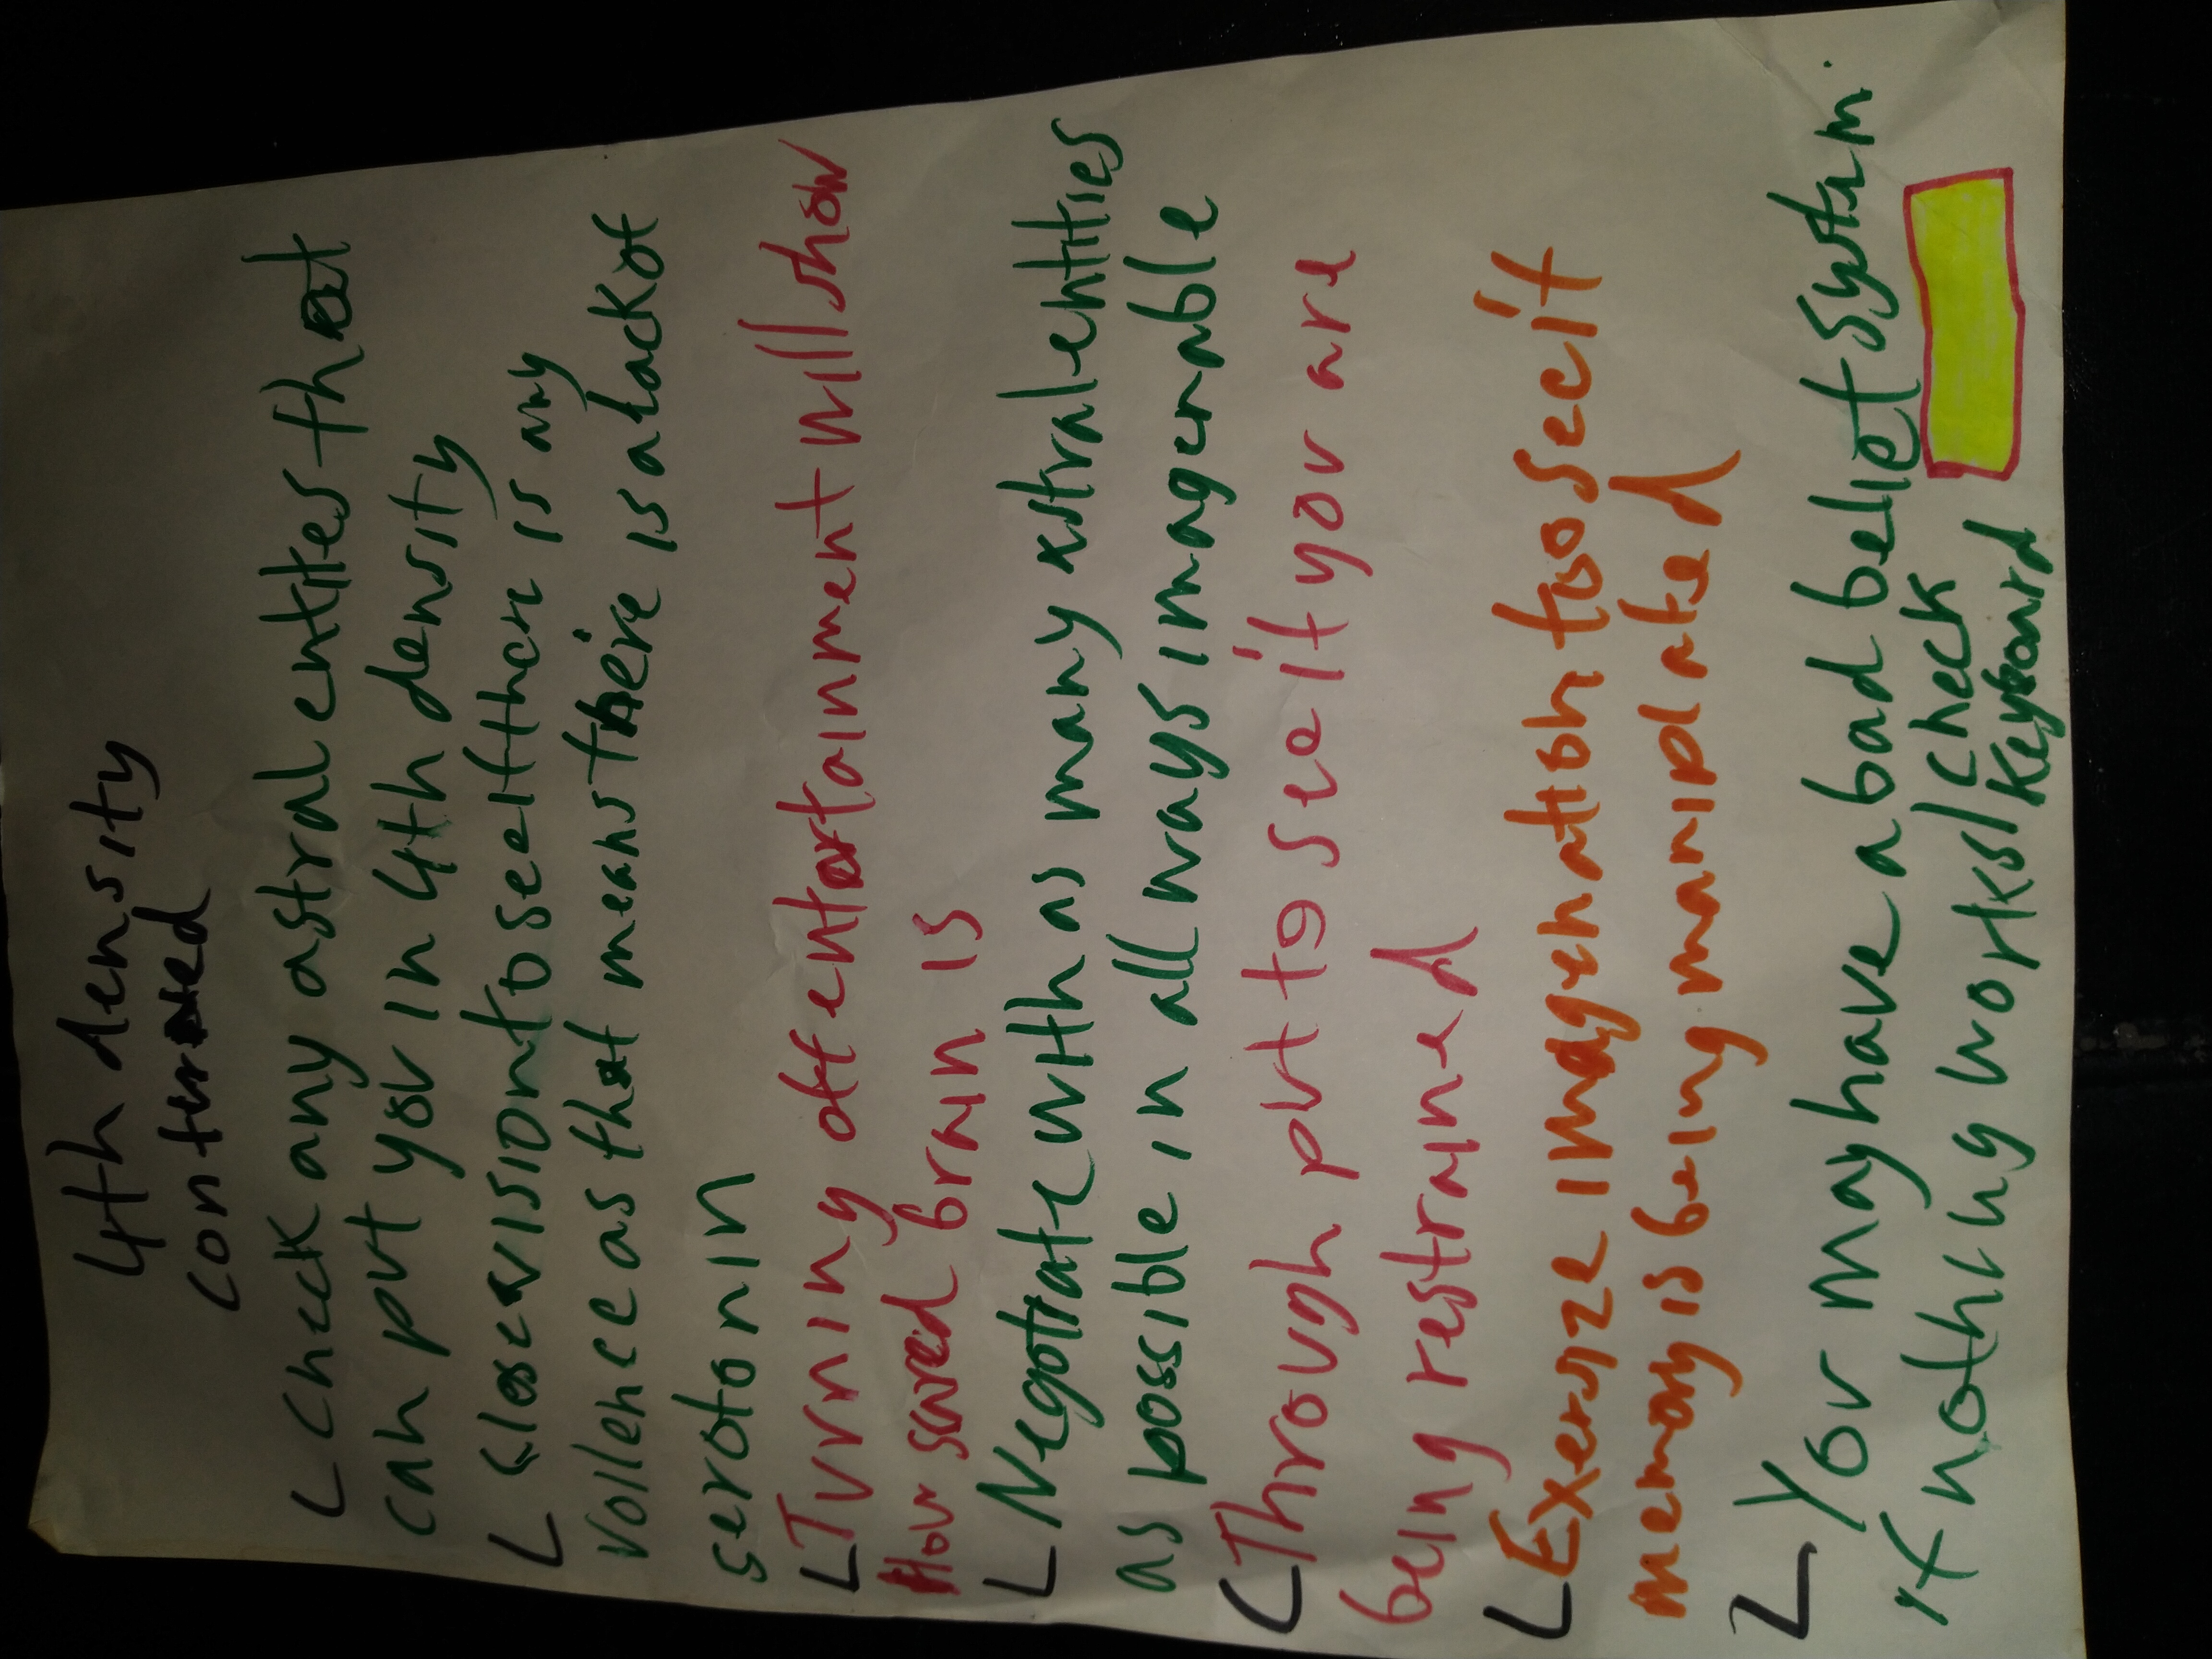 4th density
contused
Check any astral entites that
can put you in 4th density
Close visiont to see if there is any
vollence as that means there is a lack of
serotonin
Turning off entertainment will show
How scared brain is
Negotiate with as many astral entities
as possible in all ways imagenable
Through put to see if you are
being restrained
Exersize imagenation to see if
memory is being manipulated
You may have a bad belief system
if nothing works/check
Keyboard